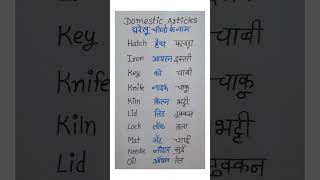 Domestic Articles
घरेलू चीजों के नाम
Hatch हैच फावड़ा
Iron आयरन इस्तरी
Key की चाबी
Knife नाइफ चाकू
Kiln किल्न भट्टी
Lid लिड ढक्कन
Lock लॉक ताला
Mat मैट चटाई
Needle नीडल सुई
Oil ऑयल तेल